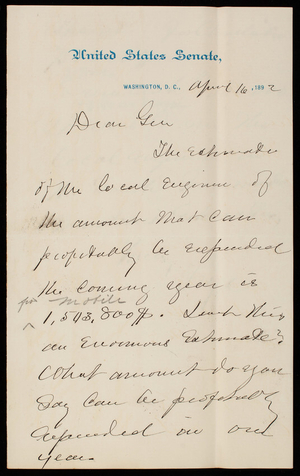 United States Senate,
WASHINGTON, D. C., April 16, 1892
Dear Gen
The Estimate
of the local Engineer of
the amount that can
profitably be expended
the coming year is
for Mobile
^ 1,543,800 Isn't this
an Enormous Estimate?
What amount do you
say can be profitably
expended in one
year.